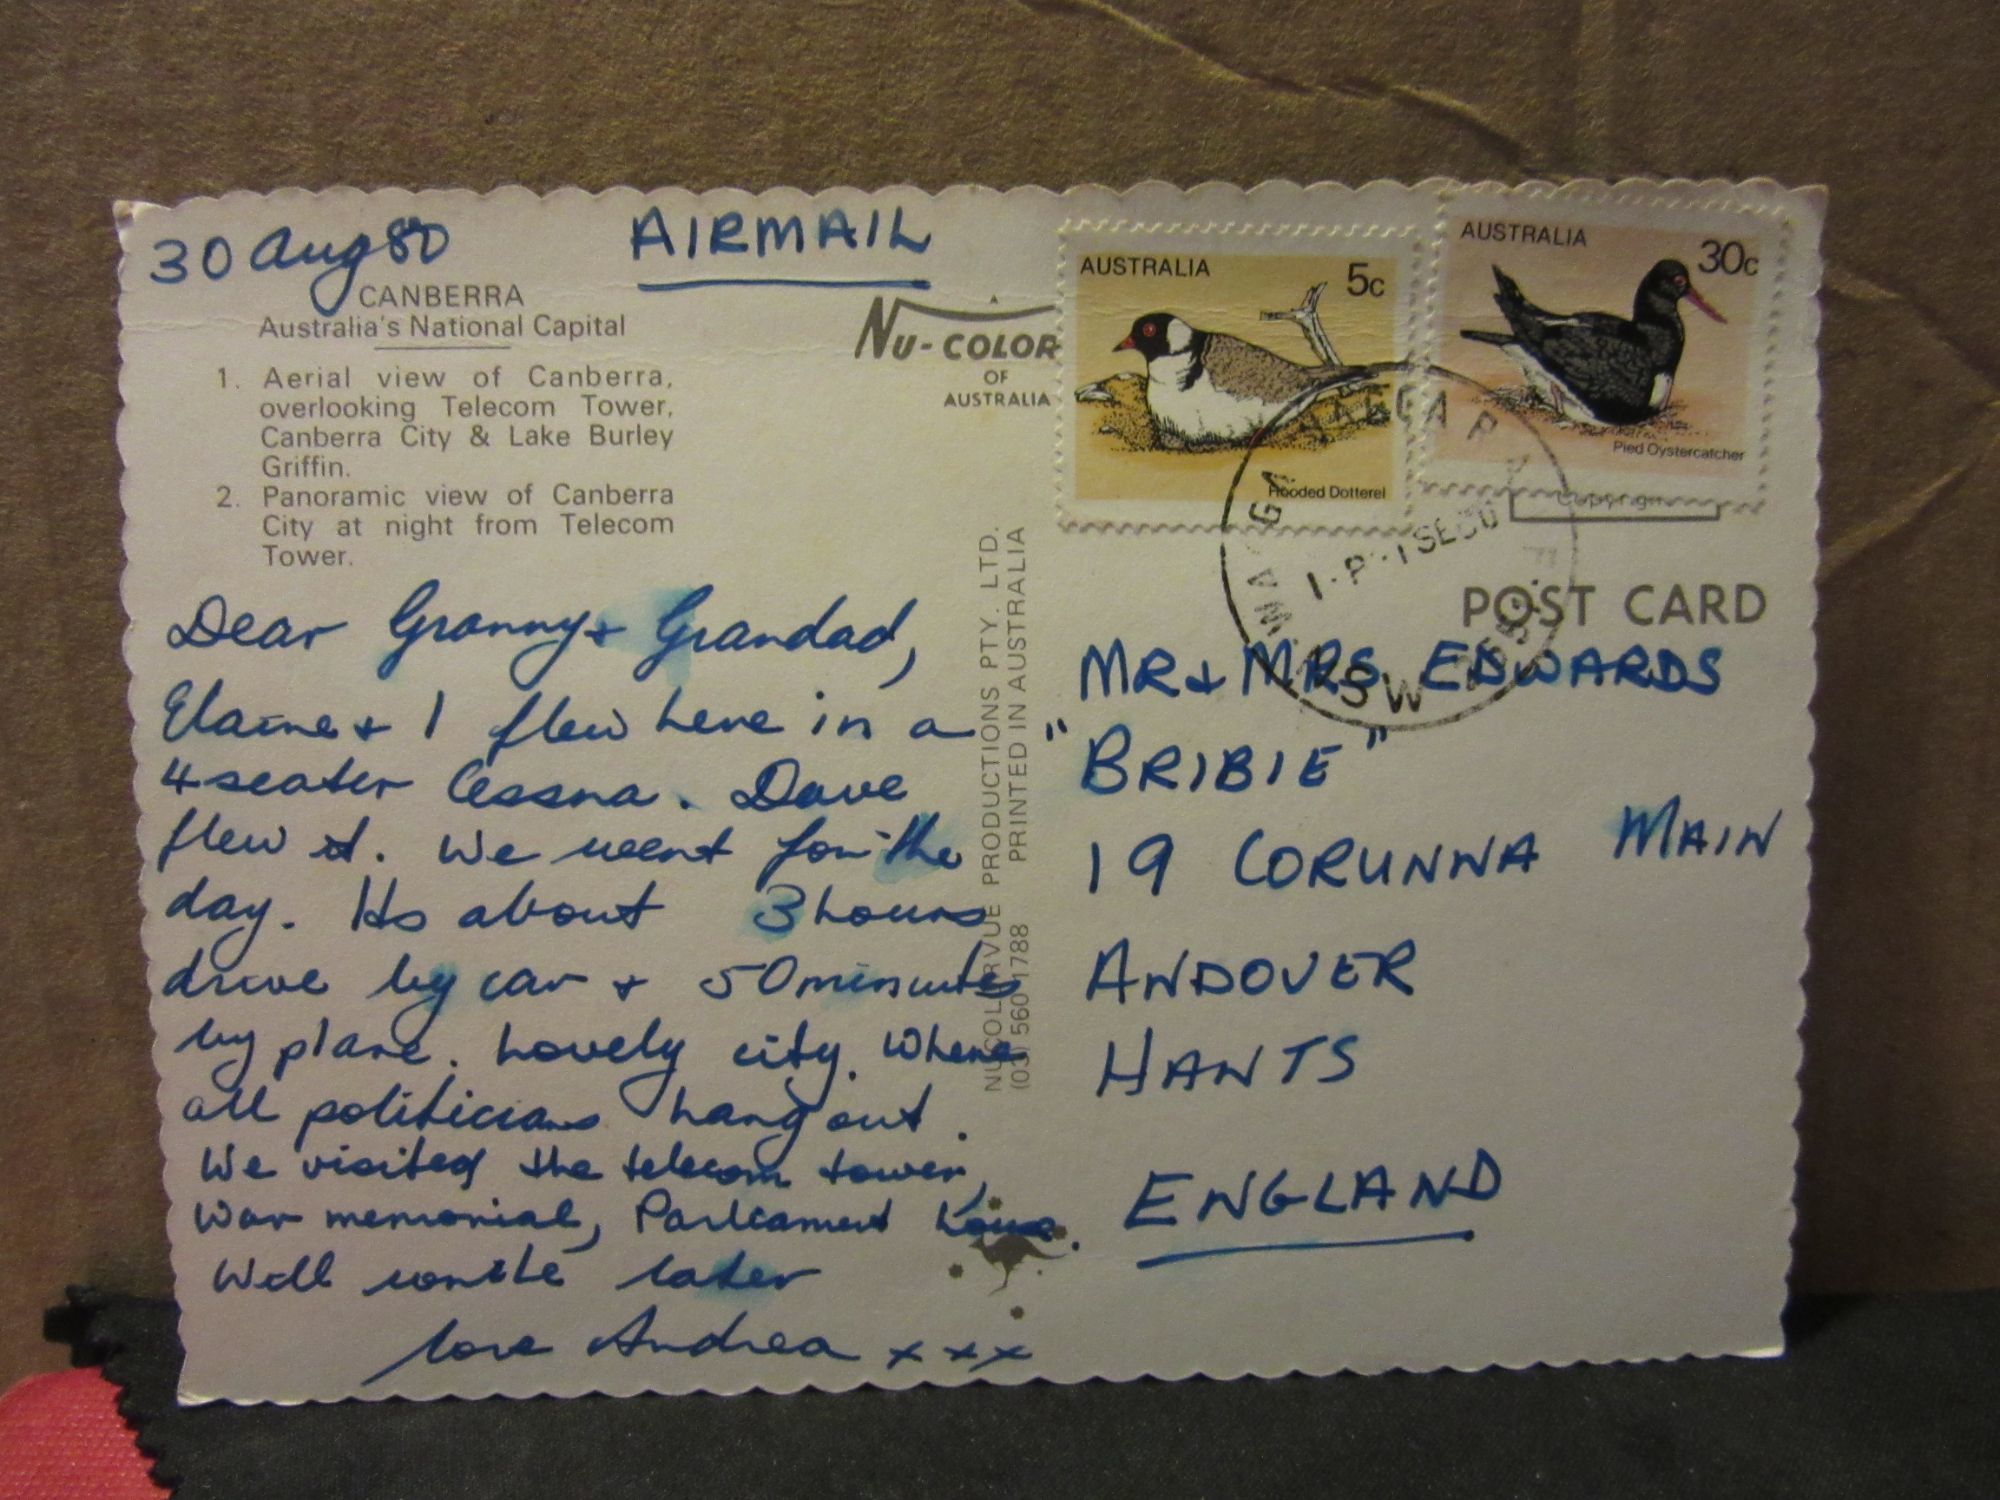 30 Aug 80
AIRMAIL
CANBERRA
Australia's National Capital
1. Aerial view of Canberra,
overlooking Telecom Tower,
Canberra City & Lake Burley
Griffin.
2. Panoramic view of Canberra
City at night from Telecom
Tower.
NU-COLOR
OF
AUSTRALIA
Dear Granny & Grandad,
Elaine & I flew here in a
4 seater Cessna. Dave
flew it. We went for the
day. Its about 3 hours
drive by car & 50 minutes
by plane. Lovely city. Where
all politicians hang out.
We visited the telecom tower,
War memorial, Parliament House.
Will write later
love Andrea x x x
NUCOLORVUE PRODUCTIONS PTY. LTD.
(03) 560 1788 PRINTED IN AUSTRALIA
AUSTRALIA
5c
Hooded Dotterel
AUSTRALIA
30c
Pied Oystercatcher
Copyright
WAGGA WAGGA
NSW
POST CARD
MR & MRS EDWARDS
"BRIBIE"
19 CORUNNA MAIN
ANDOVER
HANTS
ENGLAND